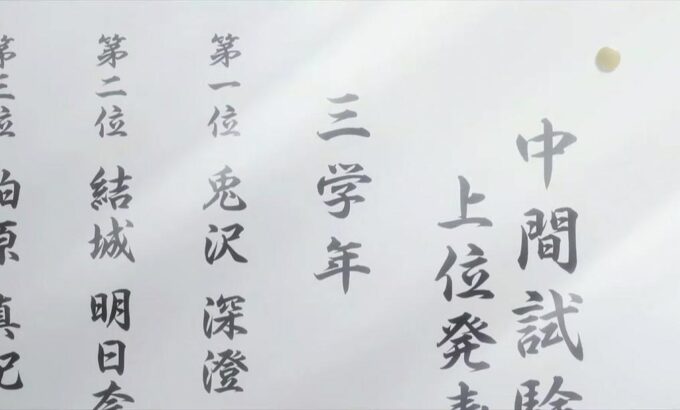 中間試験
上位発表
三学年
第一位 兎沢 深澄
第二位 結城 明日奈
第三位 柏原 真紀